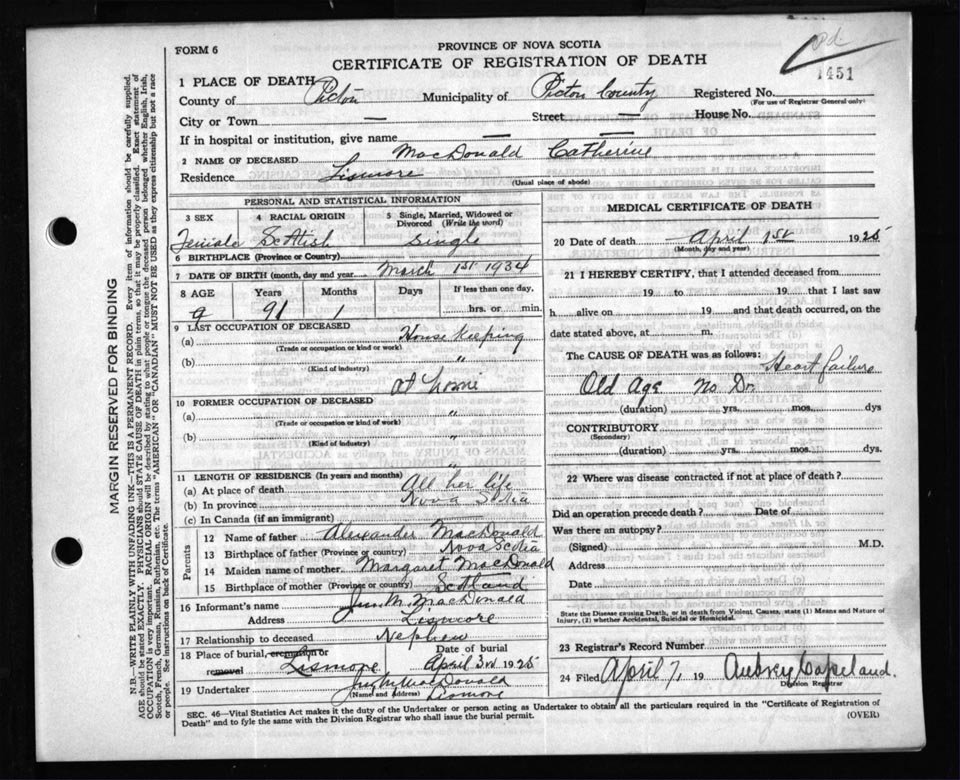 Pd
FORM 6
PROVINCE OF NOVA SCOTIA
CERTIFICATE OF REGISTRATION OF DEATH
1451
1 PLACE OF DEATH
County of Pictou Municipality of Pictou County Registered No.
(For use of Registrar General only)
City or Town — Street — House No.
If in hospital or institution, give name — —
2 NAME OF DECEASED MacDonald Catherine
Residence Lismore
(Usual place of abode)
PERSONAL AND STATISTICAL INFORMATION
3 SEX 4 RACIAL ORIGIN 5 Single, Married, Widowed or Divorced (Write the word)
Female Scottish Single
6 BIRTHPLACE (Province or Country)
7 DATE OF BIRTH (month, day and year) March 1st 1934
8 AGE Years Months Days If less than one day,
91 1 hrs. or min.
9 LAST OCCUPATION OF DECEASED
(a) House Keeping
(Trade or occupation or kind or work)
(b) "
(Kind of industry)
at home
10 FORMER OCCUPATION OF DECEASED
(a) "
(Trade or occupation or kind or work)
(b) "
(Kind of industry)
"
11 LENGTH OF RESIDENCE (In years and months)
(a) At place of death All her life
(b) In province Nova Scotia
(c) In Canada (if an immigrant)
Parents
12 Name of father Alexander MacDonald
13 Birthplace of father (Province or country) Nova Scotia
14 Maiden name of mother Margaret MacDonald
15 Birthplace of mother (Province or country) Scotland
16 Informant's name M. MacDonald
Address Lismore
17 Relationship to deceased Nephew
18 Place of burial, cremation or removal Lismore Date of burial April 3rd 1925
19 Undertaker MacDonald
(Name and address) Lismore
MEDICAL CERTIFICATE OF DEATH
20 Date of death April 1st 1925
(Month, day and year)
21 I HEREBY CERTIFY, that I attended deceased from
19 to 19 that I last saw
h alive on 19 and that death occurred, on the
date stated above, at m.
The CAUSE OF DEATH was as follows: Heart failure
Old Age No Dr.
(duration) yrs. mos. dys
CONTRIBUTORY
(Secondary)
(duration) yrs. mos. dys.
22 Where was disease contracted if not at place of death?
Did an operation precede death? Date of
Was there an autopsy?
(Signed) M.D.
Address
Date
State the Disease causing Death, or in death from Violent Causes, state (1) Means and Nature of
Injury, (2) whether Accidental, Suicidal or Homicidal.
23 Registrar's Record Number
24 Filed April 7, 19 Aubrey Copeland.
Division Registrar
SEC. 46—Vital Statistics Act makes it the duty of the Undertaker or person acting as Undertaker to obtain all the particulars required in the "Certificate of Registration of
Death" and to fyle the same with the Division Registrar who shall issue the burial permit.
(OVER)
MARGIN RESERVED FOR BINDING
N.B.—WRITE PLAINLY WITH UNFADING INK—THIS IS A PERMANENT RECORD. Every item of information should be carefully supplied.
AGE should be stated EXACTLY. PHYSICIANS should STATE CAUSE OF DEATH in plain terms, so that it may be properly classified. Exact statement of
OCCUPATION is very important. RACIAL ORIGIN will be described by stating to what people or tongue the deceased person belonged whether English, Irish,
Scotch, French, German, Russian, Ruthenian, etc. The terms "AMERICAN" OR "CANADIAN" MUST NOT BE USED as they express citizenship but not a race
or people. See instructions on back of Certificate.